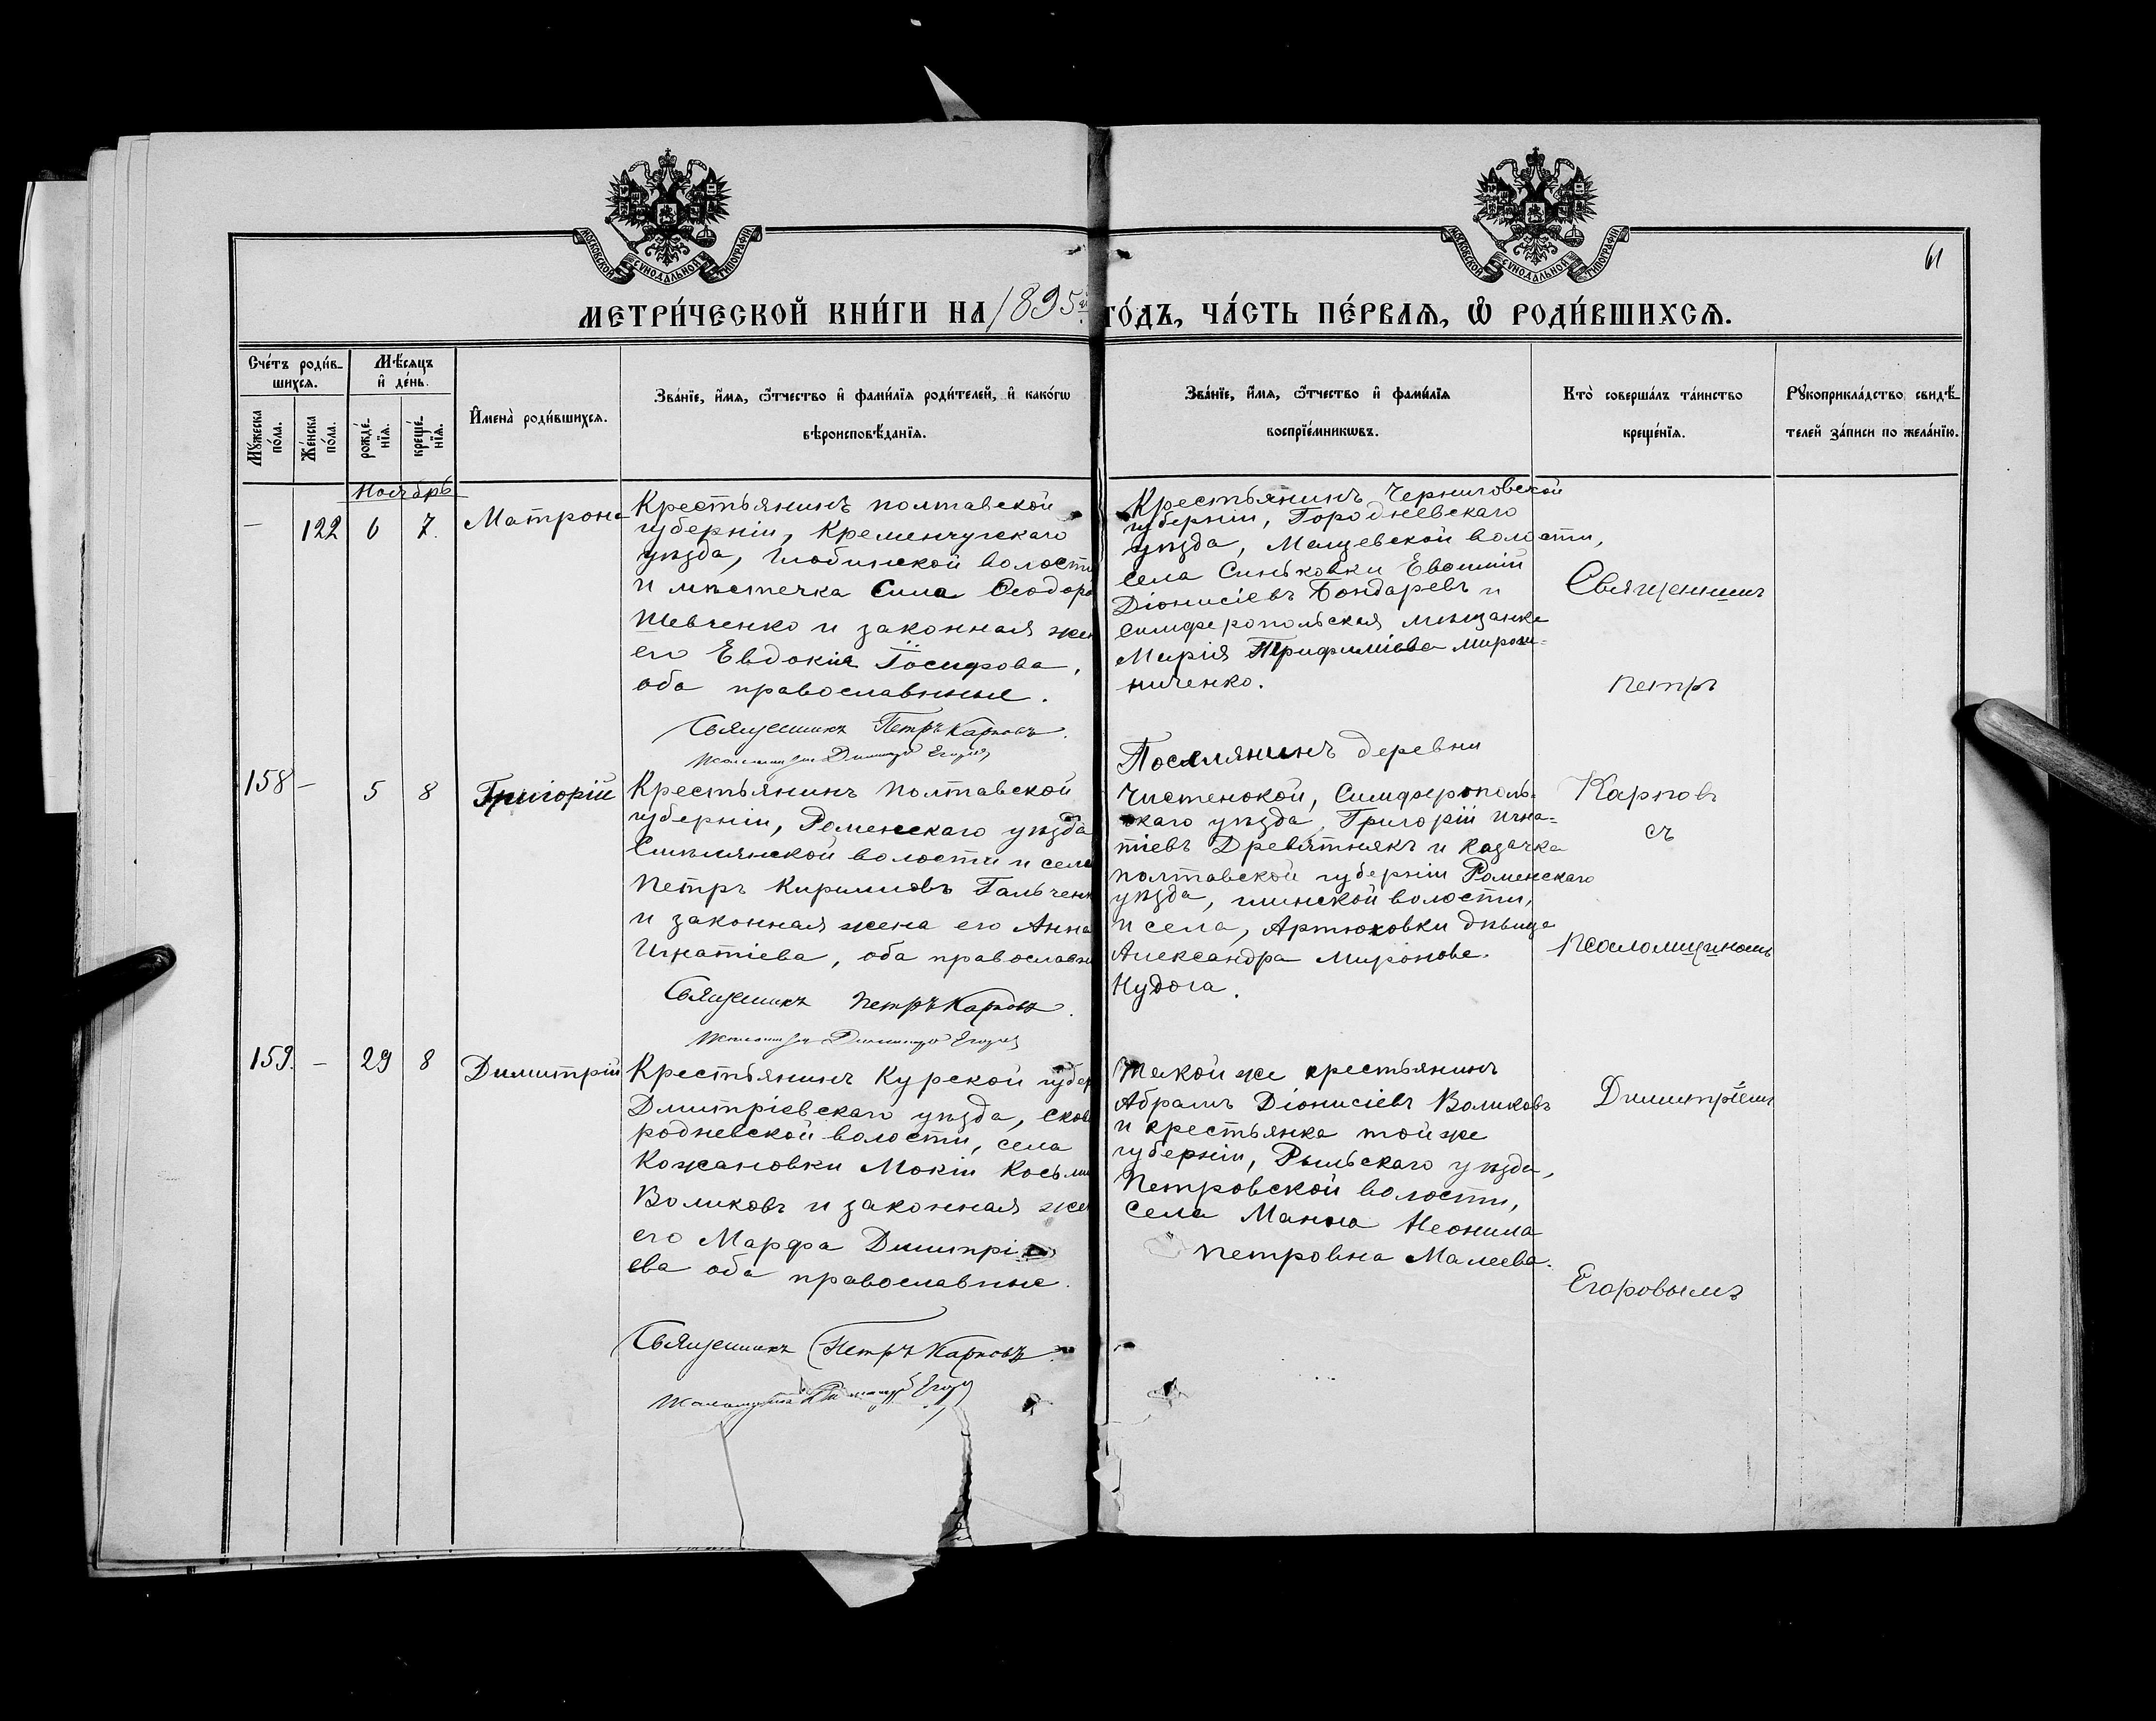 МОСКОВСКОЙ СѴНОДАЛЬНОЙ ТИПОГРАФІИ
МОСКОВСКОЙ СѴНОДАЛЬНОЙ ТИПОГРАФІИ
61
МЕТРИ́ЧЕСКОЙ КНИ́ГИ НА 1895 ГО́ДЪ, ЧА́СТЬ ПЕ́РВАѦ, Ѡ҆ РОДИ́ВШИХСѦ.
Сче́тъ роди́в-
шихсѧ.
Мꙋ́жеска по́ла.
Же́нска по́ла.
Мѣ́сѧцъ
и҆ де́нь.
рожде́-
нїѧ.
креще́-
нїѧ.
И҆мена̀ роди́вшихсѧ.
Зва́нїе, и҆́мѧ, ѻ҆́тчество и҆ фами́лїѧ роди́телей, и҆ како́гѡ
вѣроисповѣ́данїѧ.
Зва́нїе, и҆́мѧ, ѻ҆́тчество и҆ фами́лїѧ
воспрїе́мникѡвъ.
Кто̀ соверша́лъ та́инство
креще́нїѧ.
Рꙋкоприкла́дство свидѣ́-
телей за́писи по жела́нїю.
Ноябрь
— 122 6 7. Матрона
Крестьянинъ полтавской
губерніи, Кременчугскаго
уѣзда, Глобинской волости
и мѣстечка Сила Ѳеодоро
Шевченко и законная жен
его Евдокія Іосифова,
оба православные.
Священникъ Петръ Карповъ.
Псаломщикъ Димитрій Егоровъ
Крестьянинъ Черниговской
губерніи, Городневскаго
уѣзда, Мощевской волости,
села Синьковки Евѳимій
Діонисіевъ Бондаревъ и
симферопольская мѣщанка
Марія Трифиліева Мирош-
ниченко.
158 — 5 8 Григорій
Крестьянинъ Полтавской
губерніи, Роменскаго уѣзда
Смѣлянской волости и села
Петръ Кирилловъ Гальченк
и законная жена его Анна
Игнатіева, оба православн
Священникъ Петръ Карповъ.
Псаломщикъ Димитрій Егоровъ
Поселянинъ деревни
Чистенокой, Симферополь-
скаго уѣзда, Григорій Игна-
тіевъ Древятнякъ и казачка
полтавской губерніи Роменскаго
уѣзда, глинской волости,
и села, Артюховки дѣвица
Александра Миронова
Нудога.
159. — 29 8 Димитрій
Крестьянинъ Курской губер
Дмитріевскаго уѣзда, Сково
родневской волости, села
Кожановки Мокій Косьмин
Воликовъ и законная жен
его Марфа Димитрі
ева оба православные.
Священникъ Петръ Карповъ.
Псаломщикъ Димитрій Егоровъ
Такой же крестьянинъ
Абрамъ Діонисіевъ Воликовъ
и крестьянка той же
губерніи, Рыльскаго уѣзда,
Петровской волости,
села Манюю Неонила
петровна Малеева.
Священникъ
Петръ
Карповъ
съ
псаломщикомъ
Димитріемъ
Егоровымъ